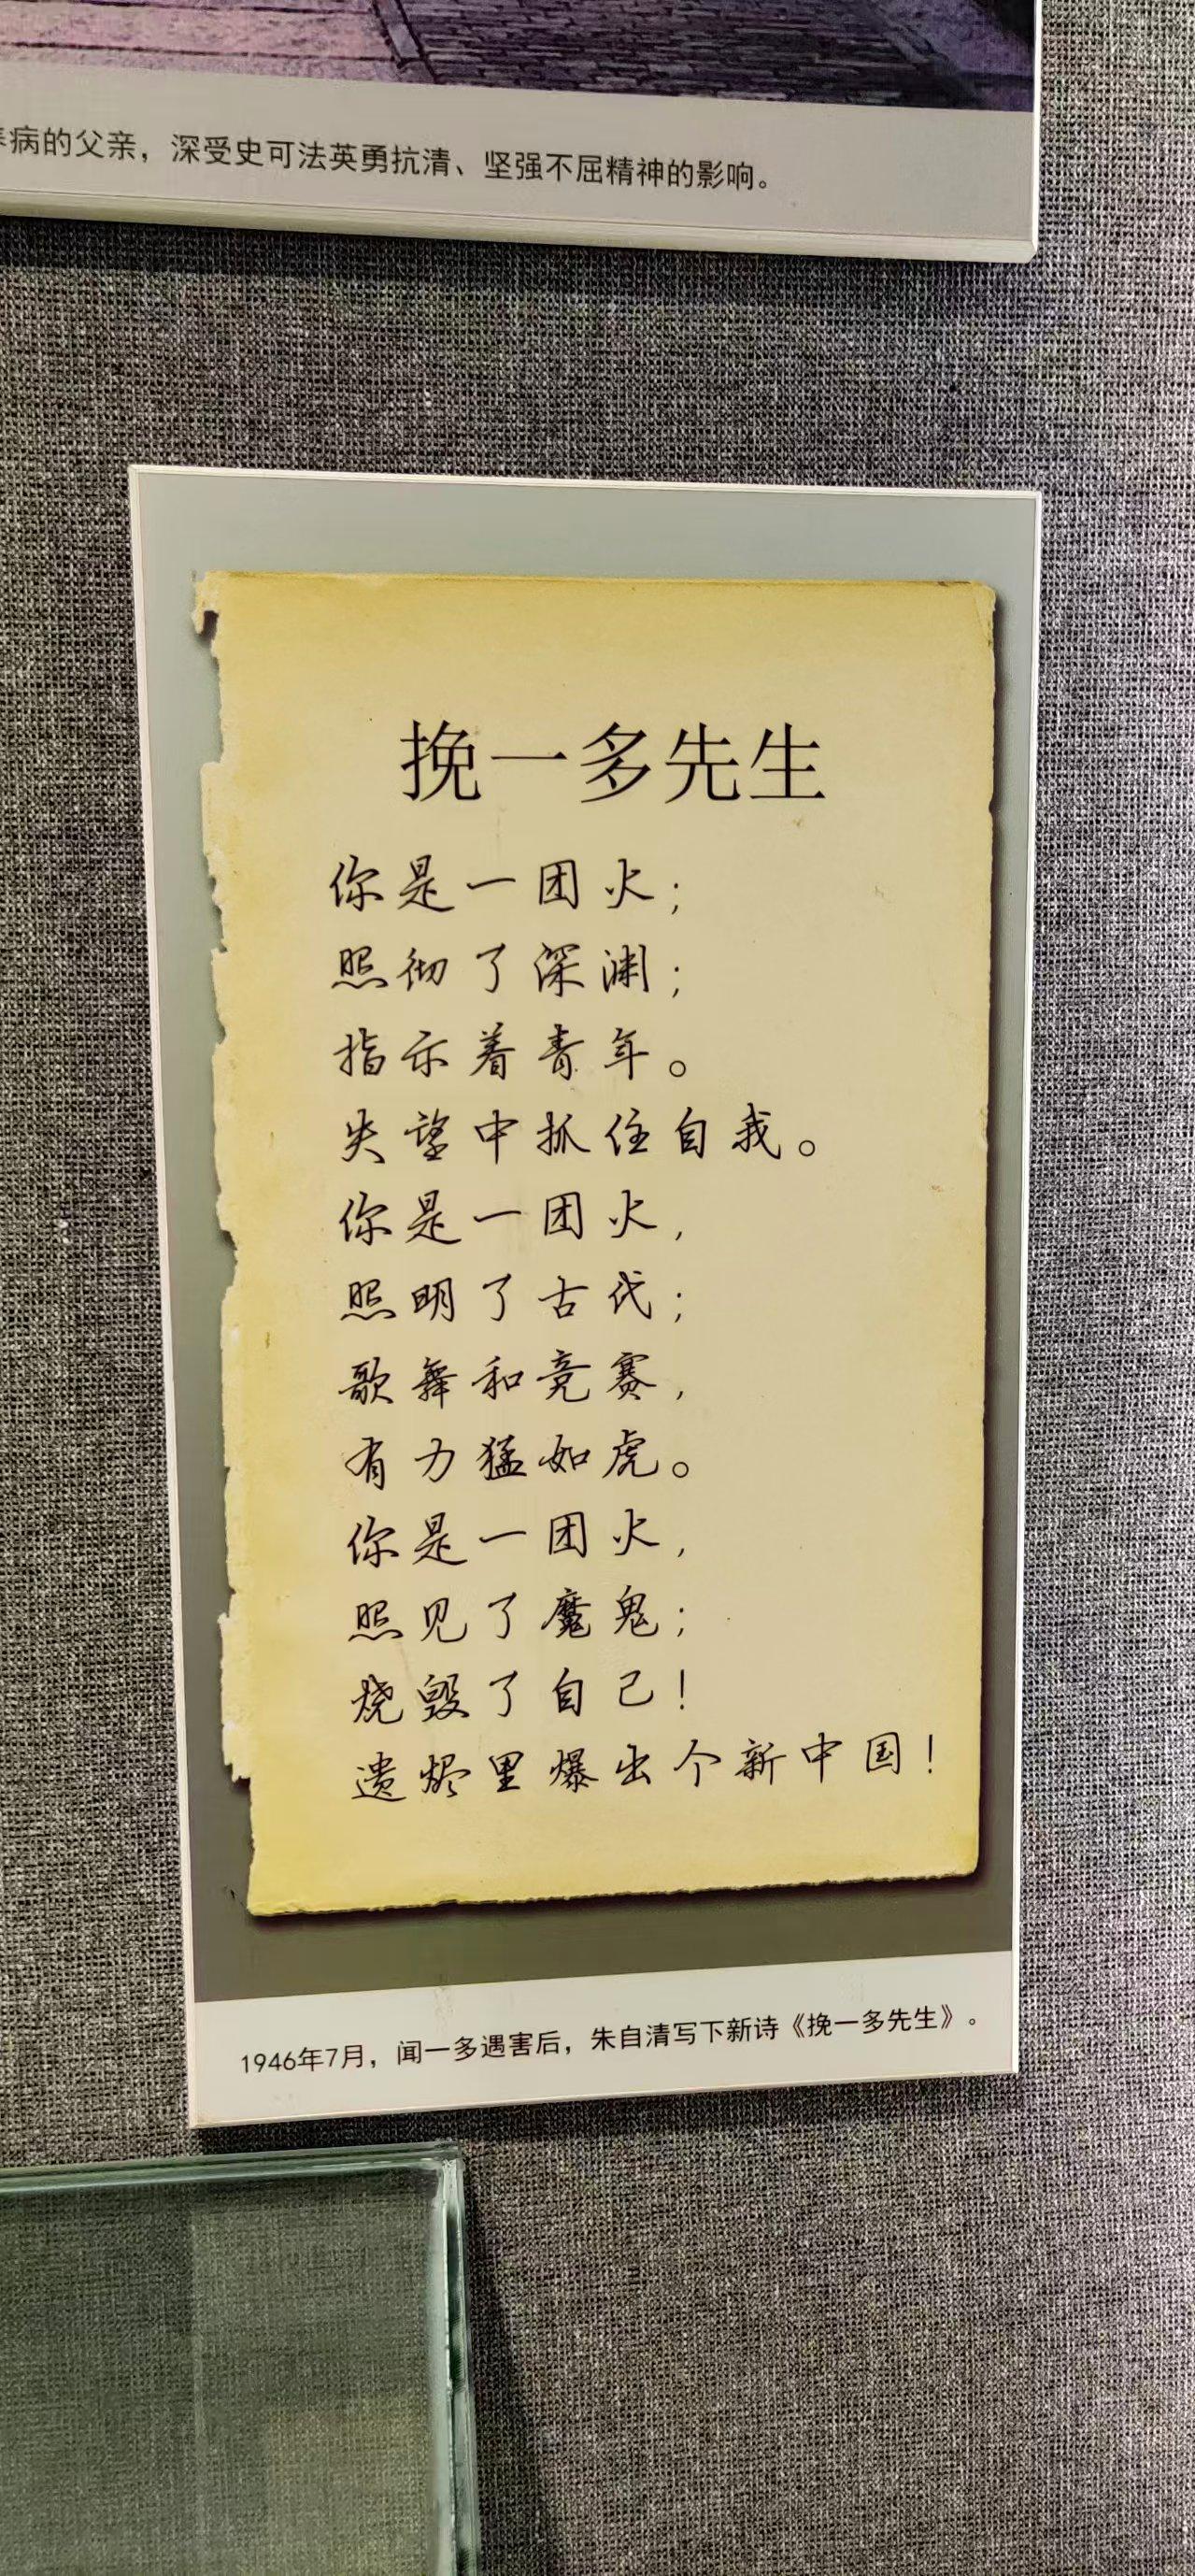 病的父亲，深受史可法英勇抗清、坚强不屈精神的影响。
挽一多先生
你是一团火；
照彻了深渊；
指示着青年。
失望中抓住自我。
你是一团火，
照明了古代；
歌舞和竞赛，
有力猛如虎。
你是一团火，
照见了魔鬼；
烧毁了自己！
遗烬里爆出个新中国！
1946年7月，闻一多遇害后，朱自清写下新诗《挽一多先生》。